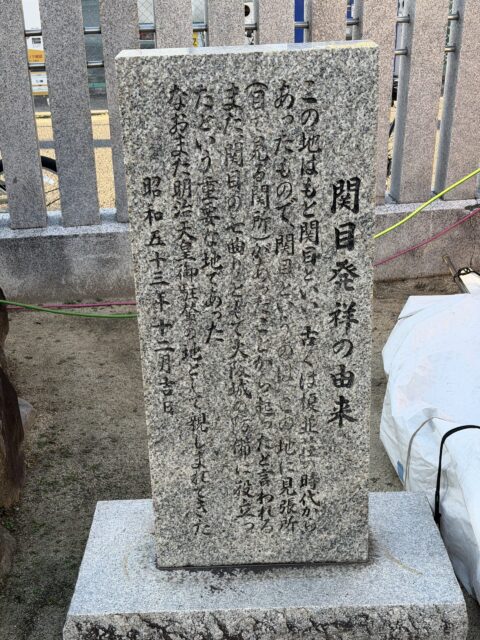 関目発祥の由来
この地はもと関目といい 古くは榎並荘の時代から
あったもので、関目というのは この地に見張所
(目で見る関所)があり ここから起ったと言われる
また 関目の七曲りとして大阪城の防衛に役立っ
たという重要な地であった
なおまた明治天皇御駐 の地として親しまれてきた
昭和五十三年十二月吉日